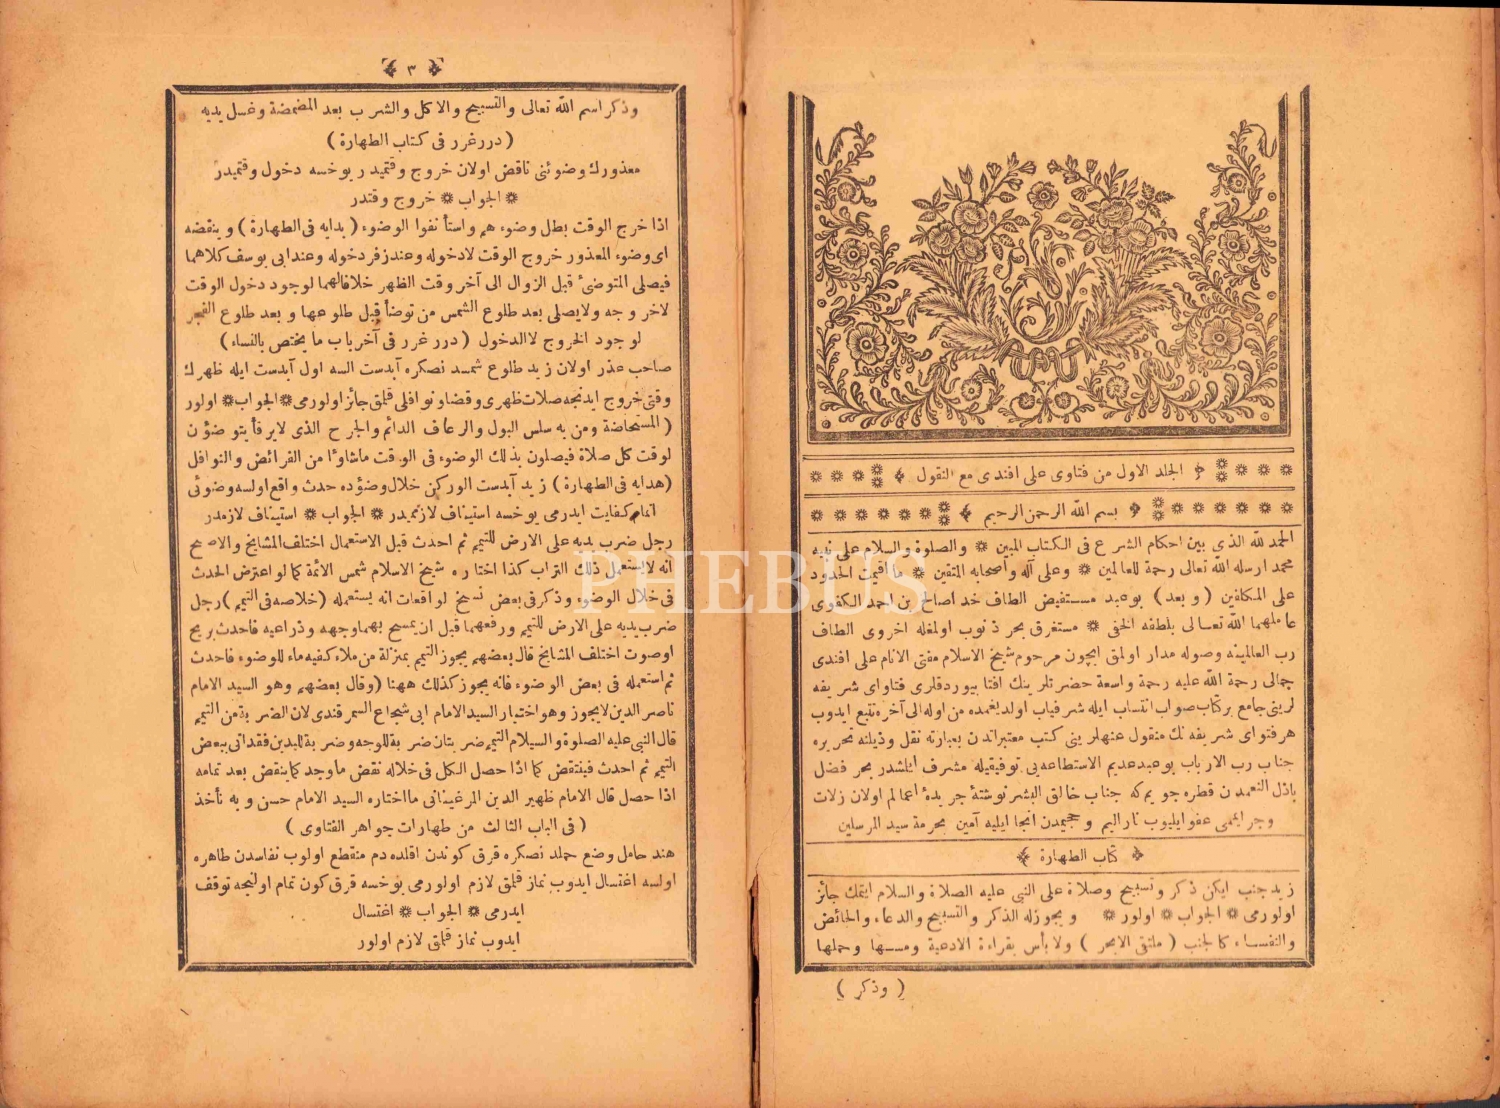 الجلد الاول من فتاوى على افندى مع النقول
بسم الله الرحمن الرحيم
الحمد لله الذي بين احكام الشرع فى الكتاب المبين ❋ والصلوة والسلام على نبيه
محمد ارسله الله تعالى رحمة للعالمين ❋ وعلى آله واصحابه المتقين ❋ ما اقيمت الحدود
على المكلفين (وبعد) بوعبد مستفيض الطاف خدا صالح بن احمد الكفوى
عاملهما الله تعالى بلطفه الخفى ❋ مستغرق بحر ذنوب اولمغله اخروى الطاف
رب العالمينه وصوله مدار اولمق ايچون مرحوم شيخ الاسلام مفتى الانام على افندى
چتالجى رحمة الله عليه رحمة واسعة حضرتلرينك افتا بيوردقلرى فتاواى شريفه
لرينى جامع بر كتاب صواب انتساب ايله شرفياب اولديغمده من اوله الى آخره تتبع ايدوب
هر فتواى شريفه نك منقول عنهلرينى كتب معتبراتدن بعبارته نقل وذيلنه تحريره
جناب رب الارباب بوعبد عديم الاستطاعه يى توفيقيله مشرف ايتلشدر بحر فضل
باذل النعمدن قطره جويم كه جناب خالق البشر نوشتهٔ جريدهٔ اعمالم اولان زلات
وجرايممى عفو ايليوب نار اليم وحجيمدن انجا ايليه آمين بحرمة سيد المرسلين
كتاب الطهارة
زيد جنب ايكن ذكر وتسبيح وصلاة على النبى عليه الصلاة والسلام ايتمك جائز
اولورمى ❋ الجواب ❋ اولور ❋ ويجوز له الذكر والتسبيح والدعاء والحائض
والنفساء كالجنب (ملتقى الابحر) ولا بأس بقراءة الادعية ومسها وحملها
(وذكر)
٣
وذكر اسم الله تعالى والتسبيح والاكل والشرب بعد المضمضة وغسل يديه
(درر غرر فى كتاب الطهارة)
معذورك وضوئنى ناقض اولان خروج وقتميدر يوخسه دخول وقتميدر
❋ الجواب ❋ خروج وقتدر
اذا خرج الوقت بطل وضوءهم واستأنفوا الوضوء (بدايه فى الطهارة) وينقضه
اى وضوء المعذور خروج الوقت لادخوله وعند زفر دخوله وعند ابى يوسف كلاهما
فيصلى المتوضئ قبل الزوال الى آخر وقت الظهر خلافا لهما لوجود دخول الوقت
لاخروجه ولا يصلى بعد طلوع الشمس من توضأ قبل طلوعها وبعد طلوع الفجر
لوجود الخروج لا الدخول (درر غرر فى آخر باب ما يختص بالنساء)
صاحب عذر اولان زيد طلوع شمسدنصكره آبدست السه اول آبدست ايله ظهرك
وقتى خروج ايدنجه صلات ظهرى وقضا ونوافلى قلمق جائز اولورمى ❋ الجواب ❋ اولور
(المستحاضة ومن به سلس البول والرعاف الدائم والجرح الذى لايرقأ يتوضؤن
لوقت كل صلاة فيصلون بذلك الوضوء فى الوقت ماشاوا من الفرائض والنوافل
(هدايه فى الطهارة) زيد آبدست الوركن خلال وضؤده حدث واقع اولسه وضوئى
اتمام كفايت ايدرمى يوخسه استيناف لازمميدر ❋ الجواب ❋ استيناف لازمدر
رجل ضرب يديه على الارض للتيمم ثم احدث قبل الاستعمال اختلف المشايخ والاصح
انه لايستعمل ذلك التراب كذا اختاره شيخ الاسلام شمس الائمة كما لو اعترض الحدث
فى خلال الوضوء وذكر فى بعض نسخ لواقعات انه يستعمله (خلاصه فى التيمم) رجل
ضرب يديه على الارض للتيمم ورفعهما قبل ان يمسح بهما وجهه وذراعيه فاحدث بريح
اوصوت اختلف المشايخ قال بعضهم يجوز التيمم بمنزلة من ملاء كفيه ماء للوضوء فاحدث
ثم استعمله فى بعض الوضوء فانه يجوز كذلك ههنا (وقال بعضهم وهو السيد الامام
ناصر الدين لايجوز وهو اختيار السيد الامام ابى شجاع السمرقندى لان الضربة من التيمم
قال النبى عليه الصلوة والسلام التيمم ضربتان ضربة للوجه وضربة لليدين فقد اتى ببعض
التيمم ثم احدث فينتقض كما اذا حصل الكل فى خلاله نقض ماوجد كما ينقض بعد تمامه
اذا حصل قال الامام ظهير الدين المرغينانى ما اختاره السيد الامام حسن وبه نأخذ
(فى الباب الثالث من طهارات جواهر الفتاوى)
هند حامل وضع حملدنصكره قرق كوندن اقلده دم منقطع اولوب نفاسدن طاهره
اولسه اغتسال ايدوب نماز قلمق لازم اولورمى يوخسه قرق كون تمام اولنجه توقف
ايدرمى ❋ الجواب ❋ اغتسال
ايدوب نماز قلمق لازم اولور
PHEBUS